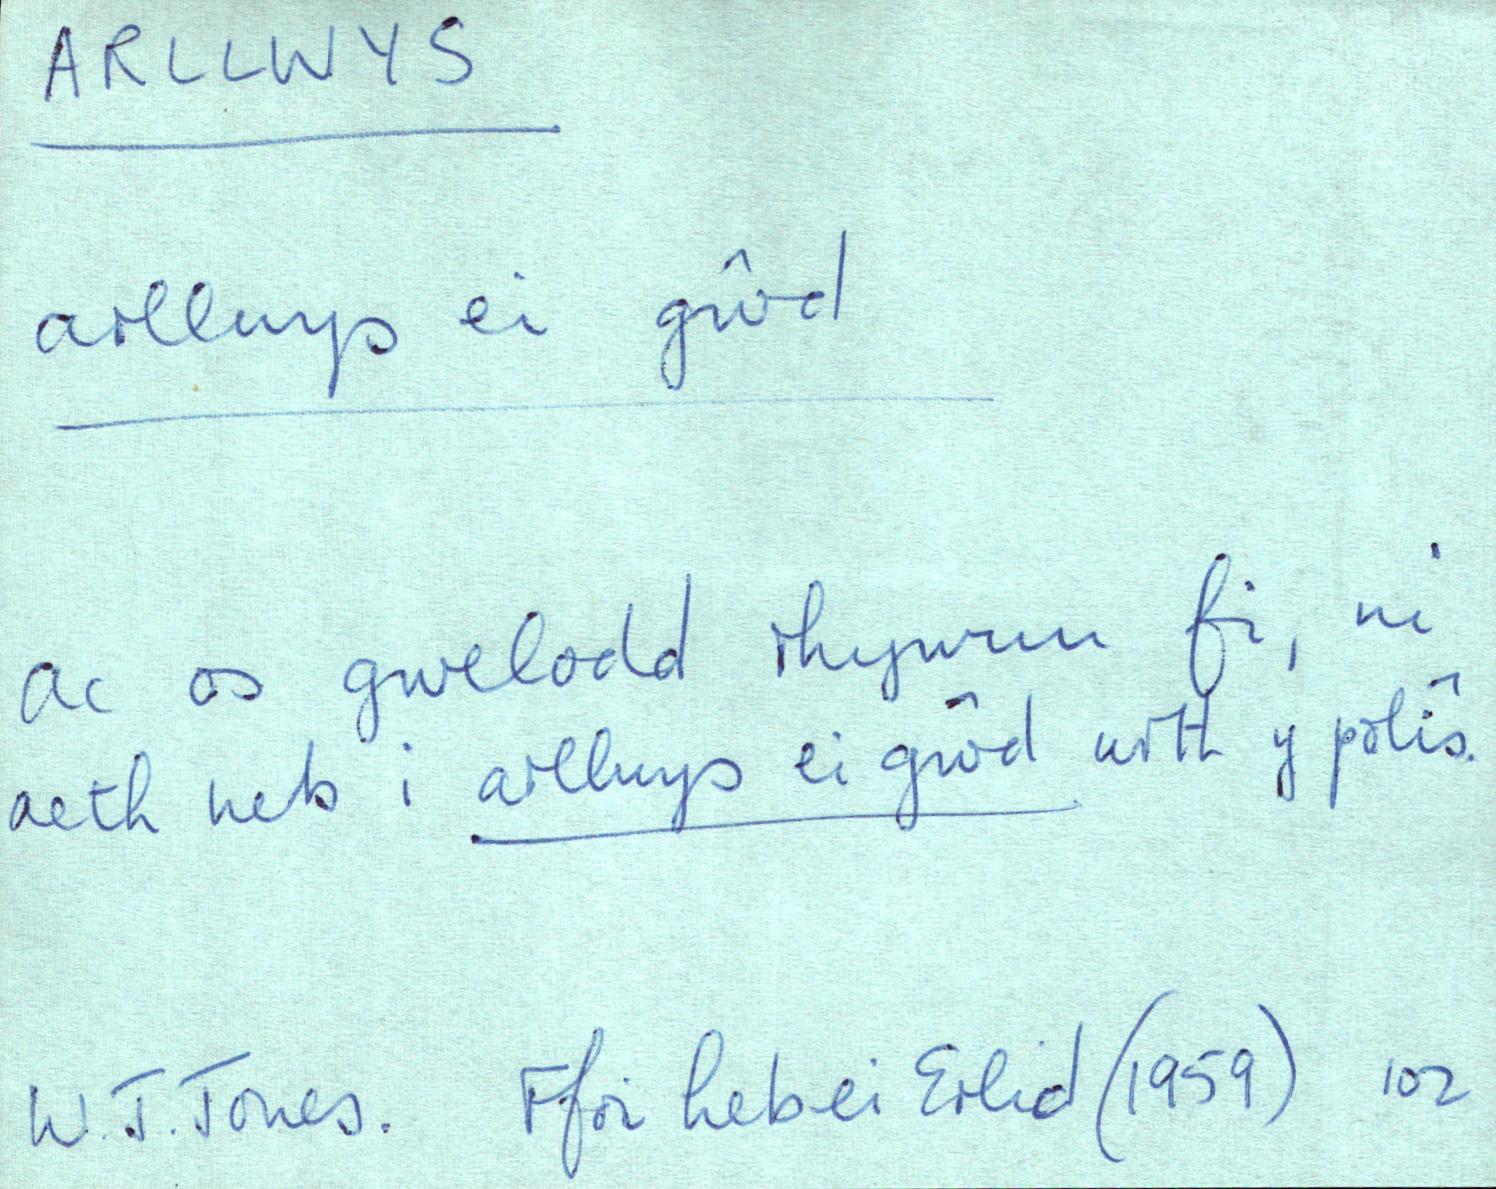 ARLLWYS
arllwys ei gŵd
ac os gwelodd rhywun fi, ni
aeth neb i arllwys ei gŵd wrth y polîs.
W.J. Jones. Ffoi heb ei Erlid (1959) 102